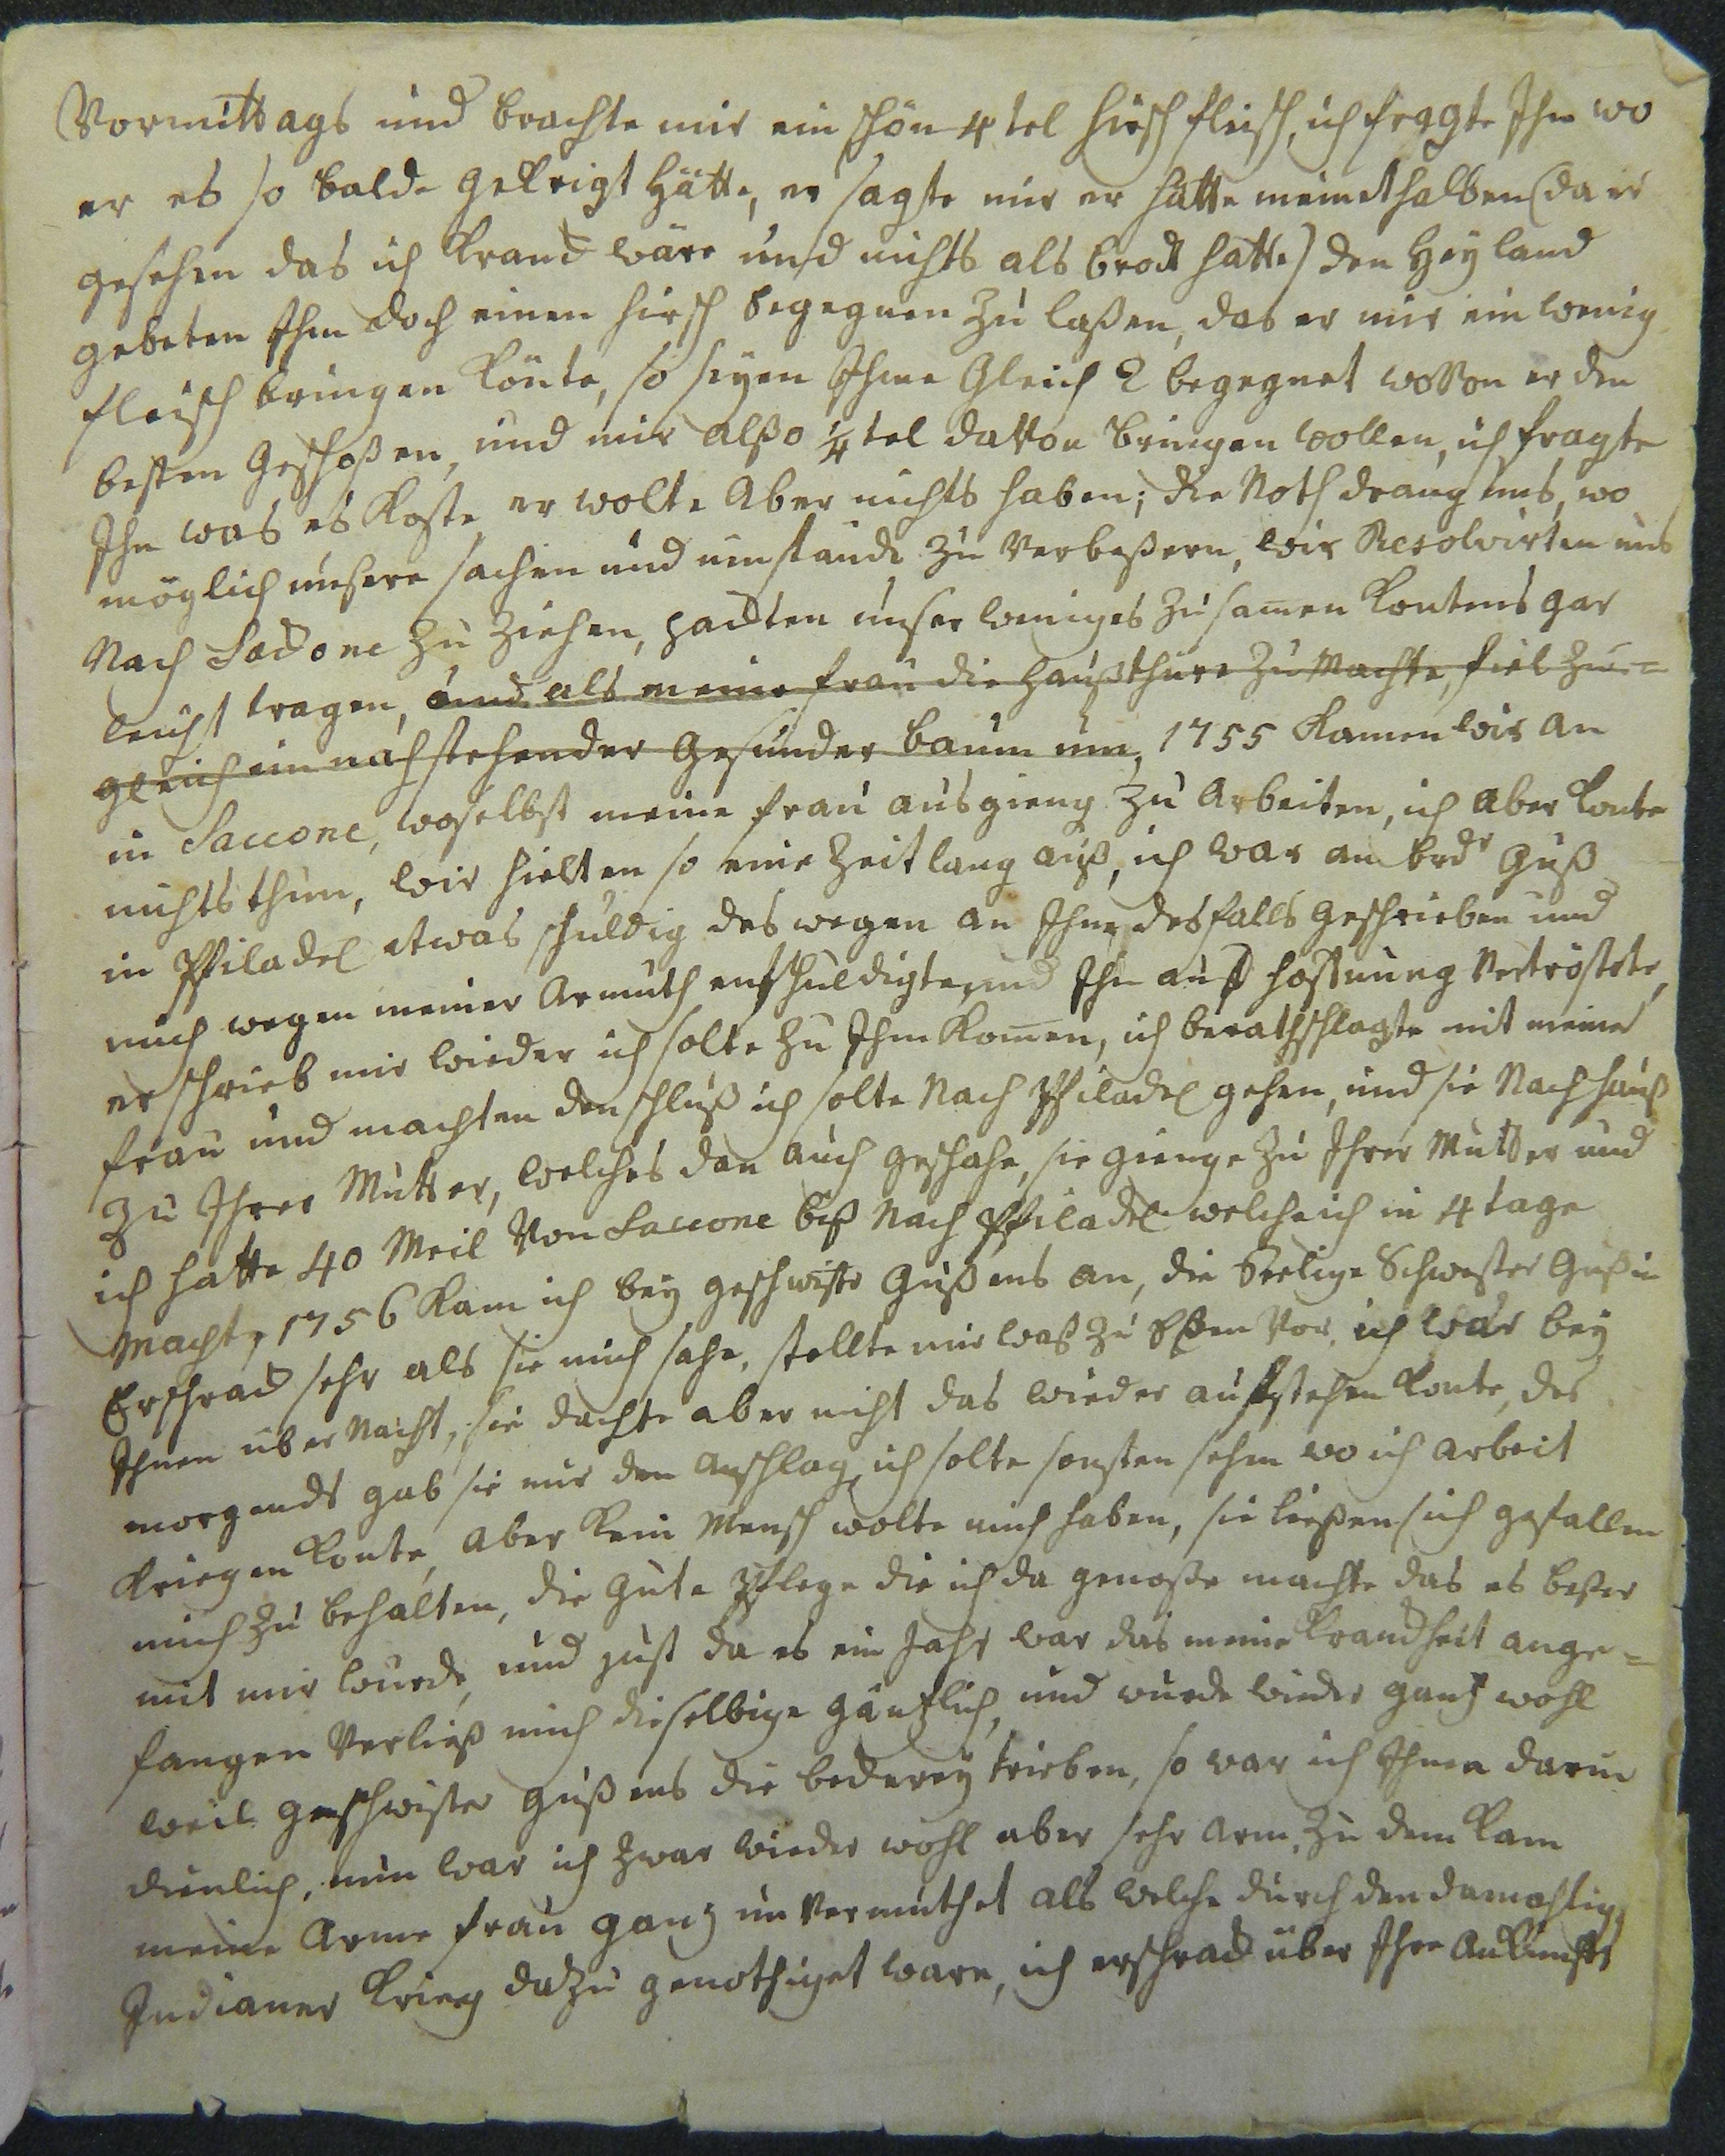 Vormittags und brachte mir ein schön 4tel hirsch fleisch, ich fragte Ihn wo
er es so balde gekrigt hätte, er sagte mir er hätte meinethalben (da er
gesehen das ich kranck wäre und nichts als brodt hatte) den Heyland
gebeten Ihm doch einen hirsch begegnen zu laßen, das er mir ein wenig
fleisch bringen könte, so seyen Ihme gleich 2 begegnet wovon er den
besten geschoßen, und mir alßo ¼tel davon bringen wollen, ich fragte
Ihn was es koste, er wolte aber nichts haben; die Noth drang uns, wo
möglich unsere sachen und umstände zu verbeßern, wir Resolvirten uns
Nach Sackone zu ziehen, packten unser weniges zusamen kontens gar
leicht tragen, und als meine frau die haußthüre zu machte, fiel zu=
gleich ein nahstehender gesunder baum um, 1755 kamen wir an
in Saccone, woselbst meine frau ausgieng zu arbeiten, ich aber konte
nichts thun, wir hielten so eine Zeitlang auß, ich war an brdr Guß
in Philadel etwas schuldig deswegen an Ihne desfalls geschrieben und
mich wegen meiner Armuth entschuldigte, und Ihn auf hoffnung vertröstete,
er schrieb mir wieder ich solte zu Ihm komen, ich berathschlagte mit meine
frau und machten den schluß ich solte Nach Philadel gehen, und sie Nach hauß
zu Ihrer Mutter, welches dan auch geschahe, sie gienge zu Ihrer Mutter und
ich hatte 40 Meil von Saccone biß Nach Philadel welche ich in 4 tage
Macht, 1756 kam ich bey geschwistr Gußens an, die Seelige Schwester Gußin
Erschrack sehr als sie mich sahe, stellte mir waß zu Eßen vor, ich war bey
Ihnen über Nacht, sie dachte aber nicht das wieder aufstehen konte, des
morgends gab sie mir den anschlag ich solte sonsten sehen wo ich arbeit
kriegen konte, aber kein Mensch wolte mich haben, sie ließen sich gefallen
mich zu behalten, die gute pflege die ich da genoße machte das es beßer
mit mir wurde, und just da es ein Jahr war das meine kranckheit ange=
fangen verließ mich dieselbige gäntzlich, und wurde wieder gantz wohl
weil geschwister Gußens die beckerey trieben, so war ich Ihnen darin
dienlich, nun war ich zwar wieder wohl aber sehr arm, zu dem kam
meine arme frau gantz unvermuthet als welche durch den damahlig
Indianer krieg dazu genöthiget ware, ich erschrack über Ihre ankunfft